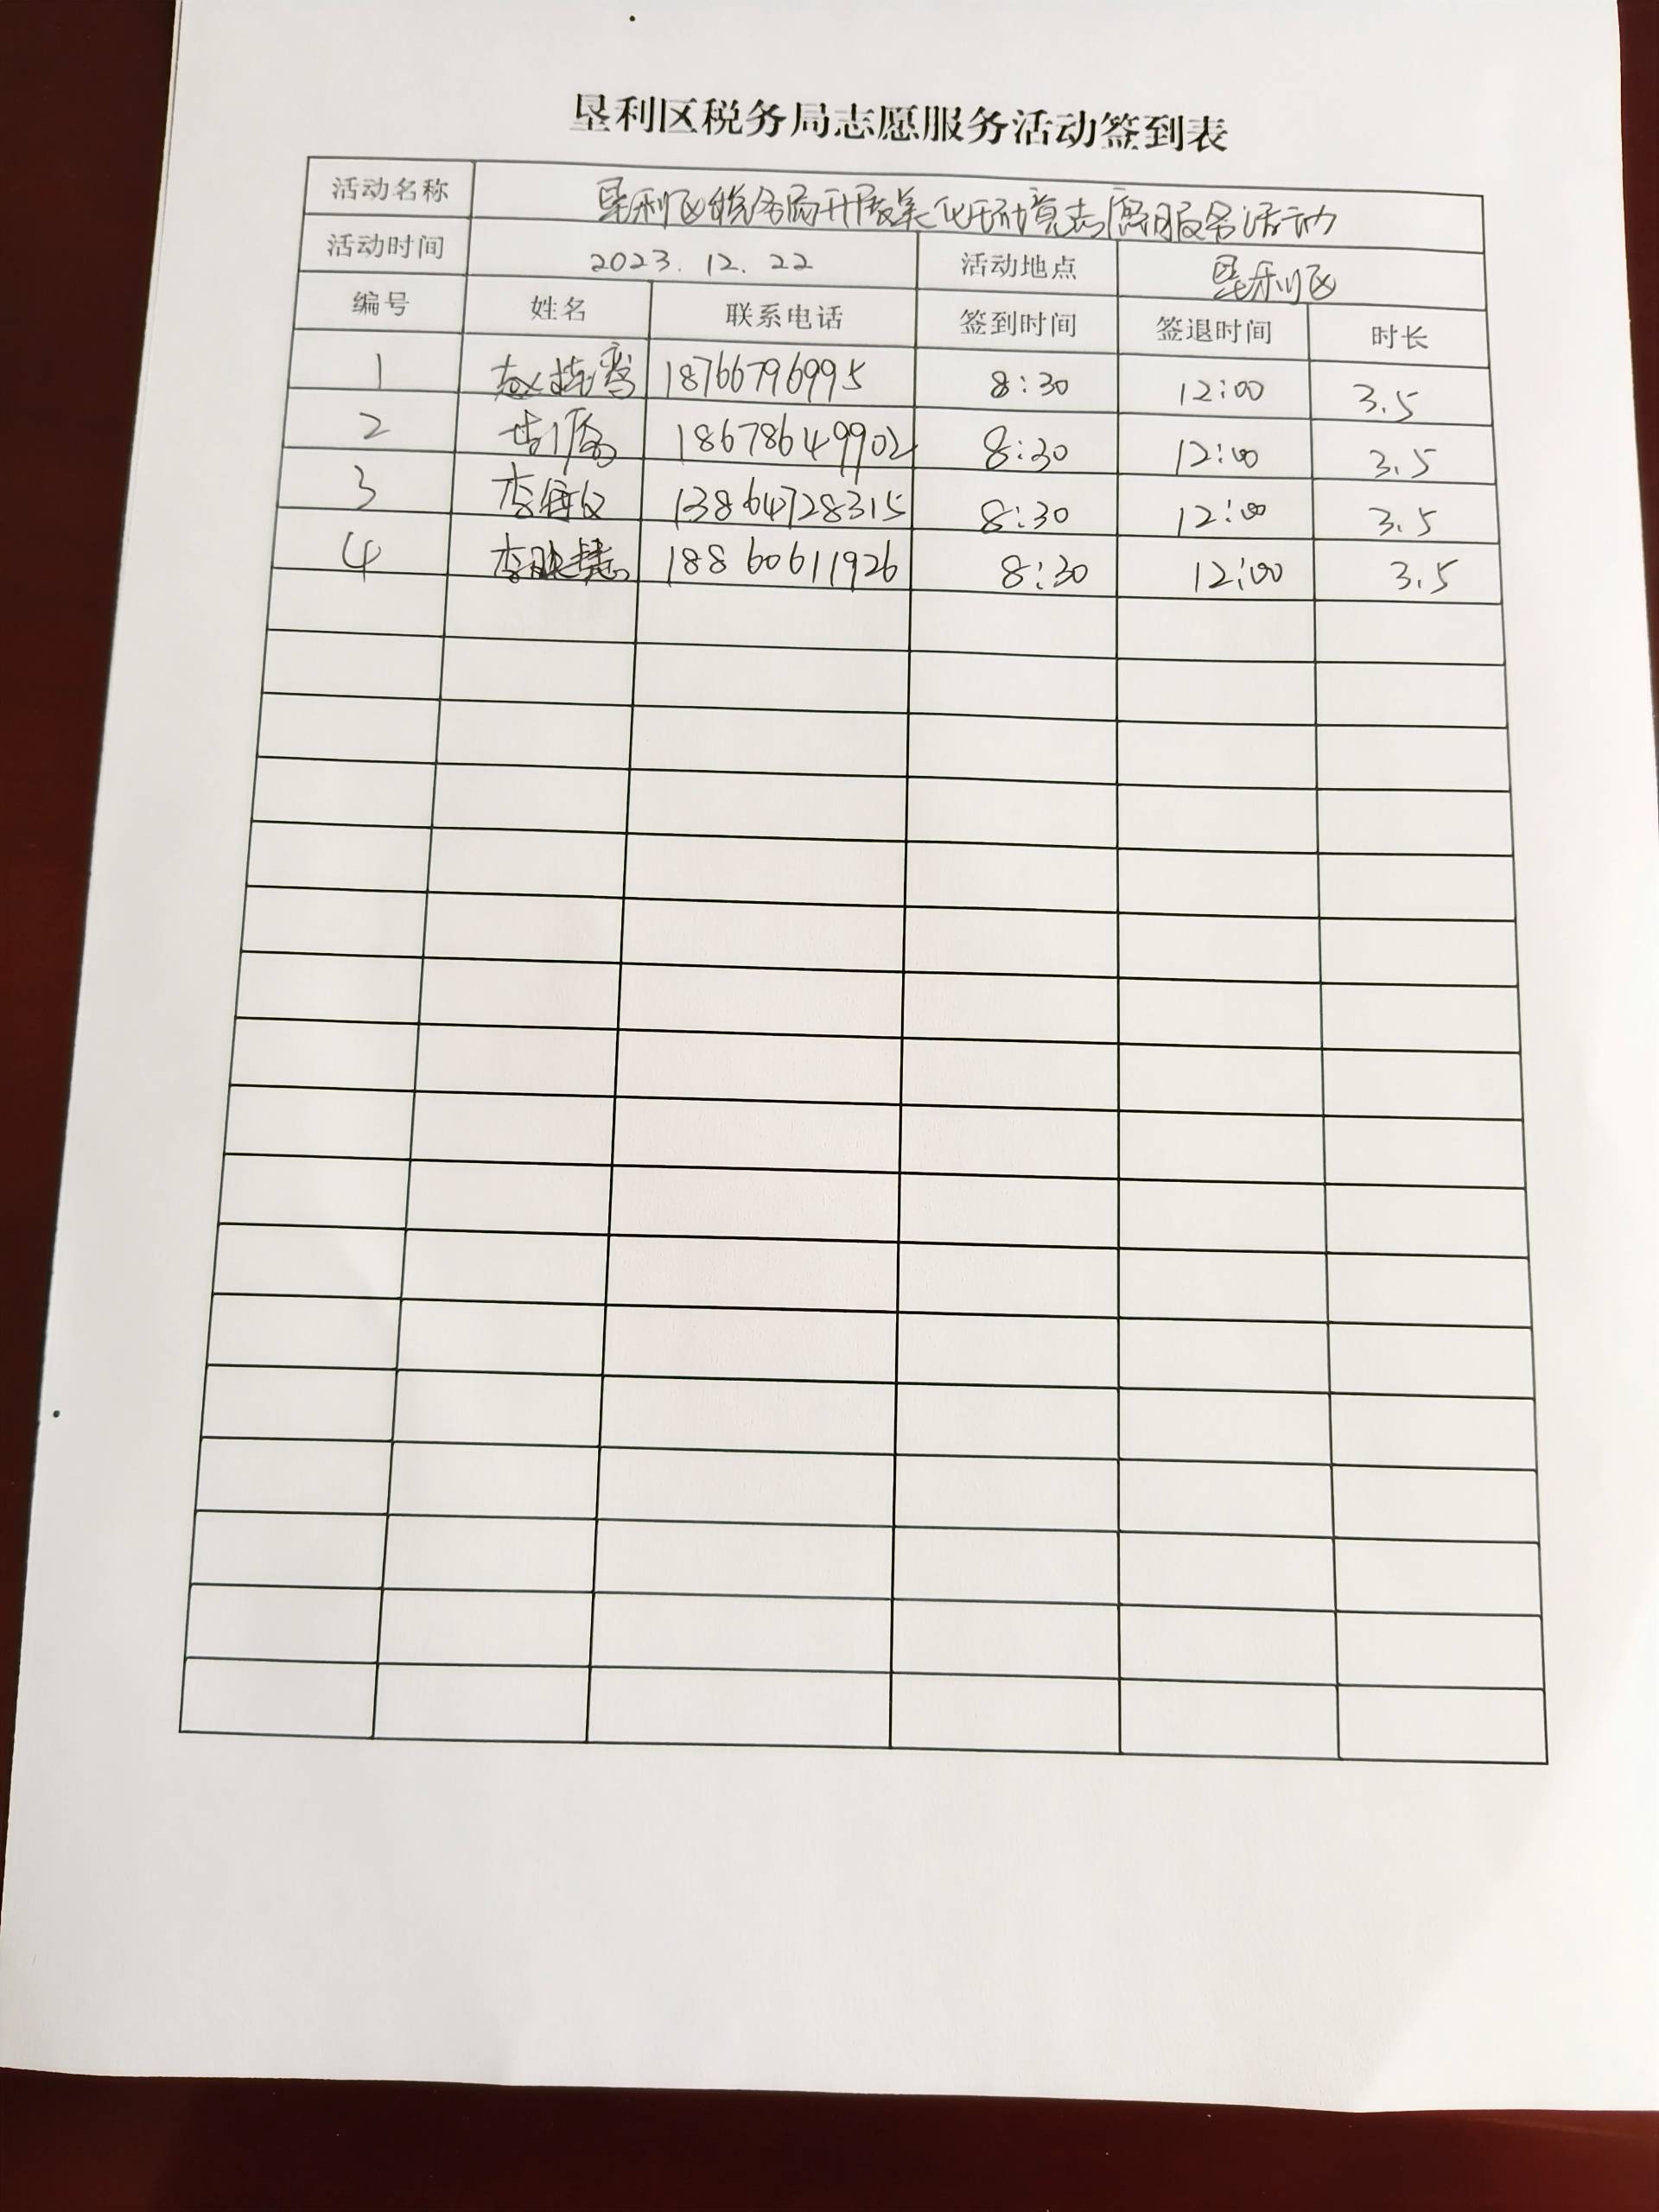 垦利区税务局志愿服务活动签到表
活动名称 垦利区税务局开展美化环境志愿服务活动
活动时间 2023.12.22 活动地点 垦利区
编号 姓名 联系电话 签到时间 签退时间 时长
1 18766796995 8:30 12:00 3.5
2 18678649902 8:30 12:00 3.5
3 李 13864728315 8:30 12:00 3.5
4 李 慧 18860611926 8:30 12:00 3.5